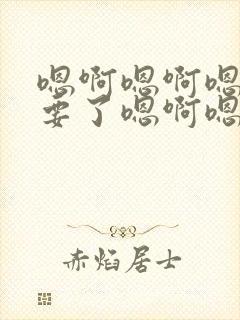 嗯啊嗯啊嗯
要了嗯啊嗯
赤焰居士